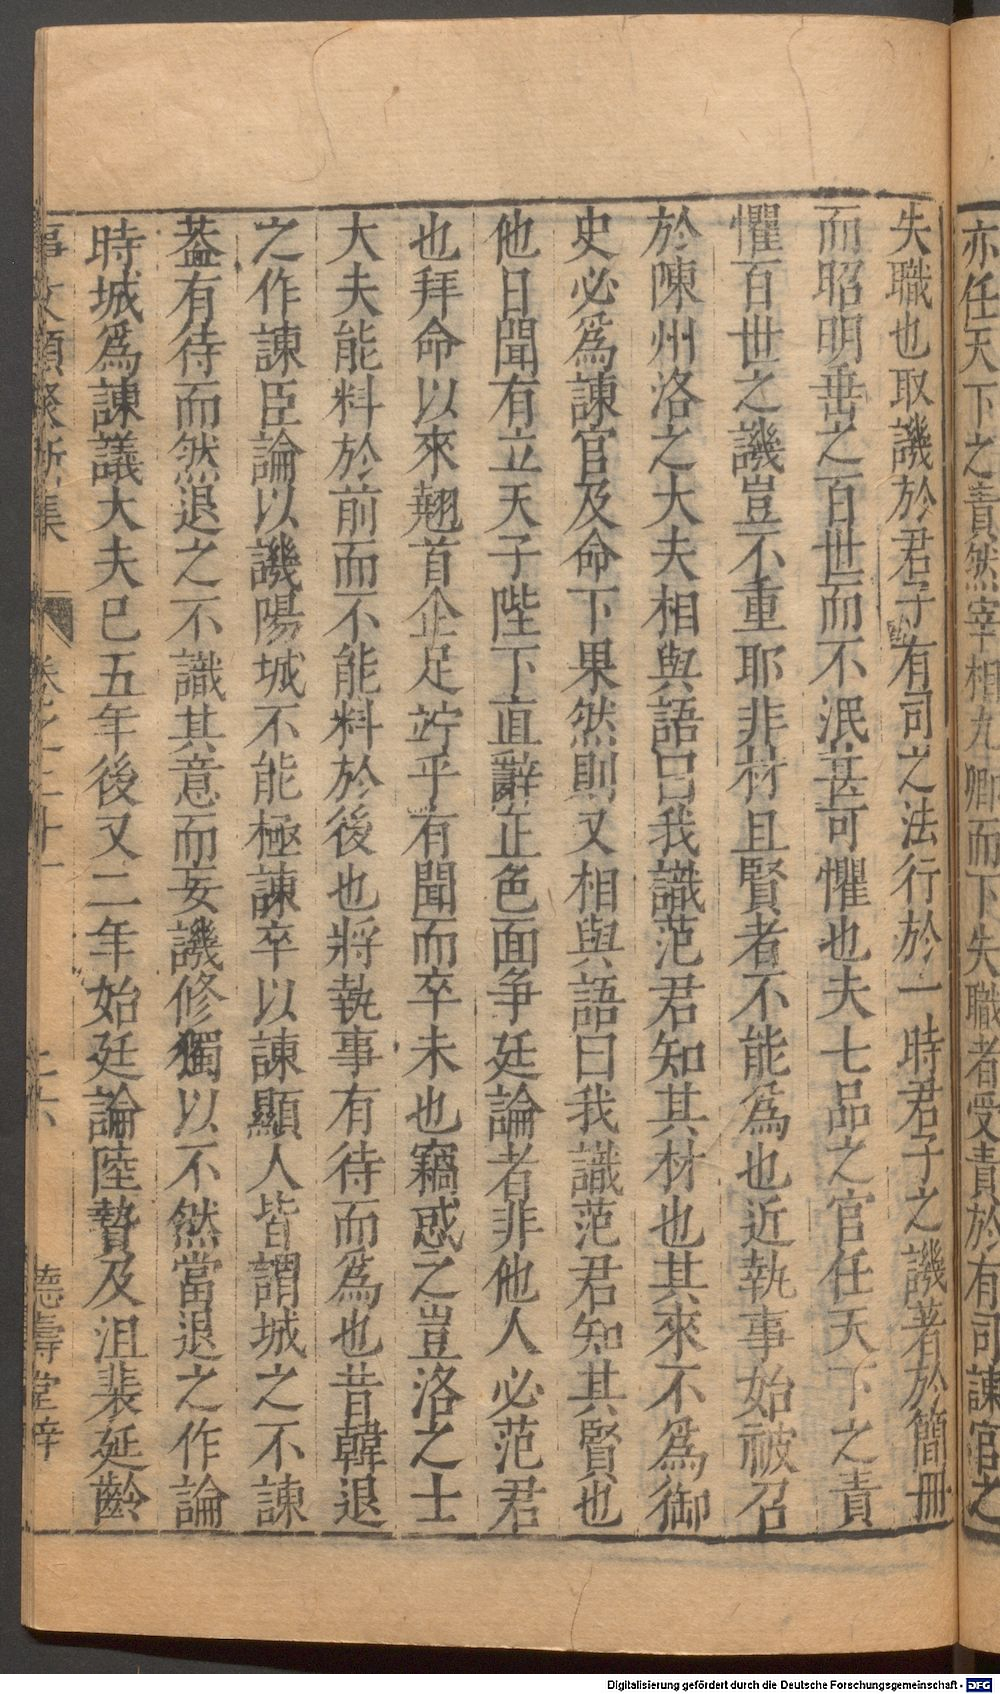 亦任天下之責然宰相九卿而下失職者受責於有司諫官之
失職也取譏於君子有司之法行於一時君子之譏著於簡冊
而昭明垂之百世而不泯甚可懼也夫七品之官任天下之責
懼百世之譏豈不重耶非材且賢者不能爲也近執事始被召
於陳州洛之大夫相與語曰我識范君知其材也其來不爲御
史必爲諫官及命下果然則又相與語曰我識范君知其賢也
他日聞有立天子陛下直辭正色面争廷論者非他人必范君
也拜命以來翹首企足竚乎有聞而卒未也竊惑之豈洛之士
大夫能料於前而不能料於後也將執事有待而爲也昔韓退
之作諫臣論以譏陽城不能極諫卒以諫顯人皆謂城之不諫
葢有待而然退之不識其意而妄譏修獨以不然當退之作論
時城爲諫議大夫巳五年後又二年始廷論陸贄及沮裴延齡
事文類聚新集 卷之二十一 二六 德壽堂梓
Digitalisierung gefördert durch die Deutsche Forschungsgemeinschaft - DFG